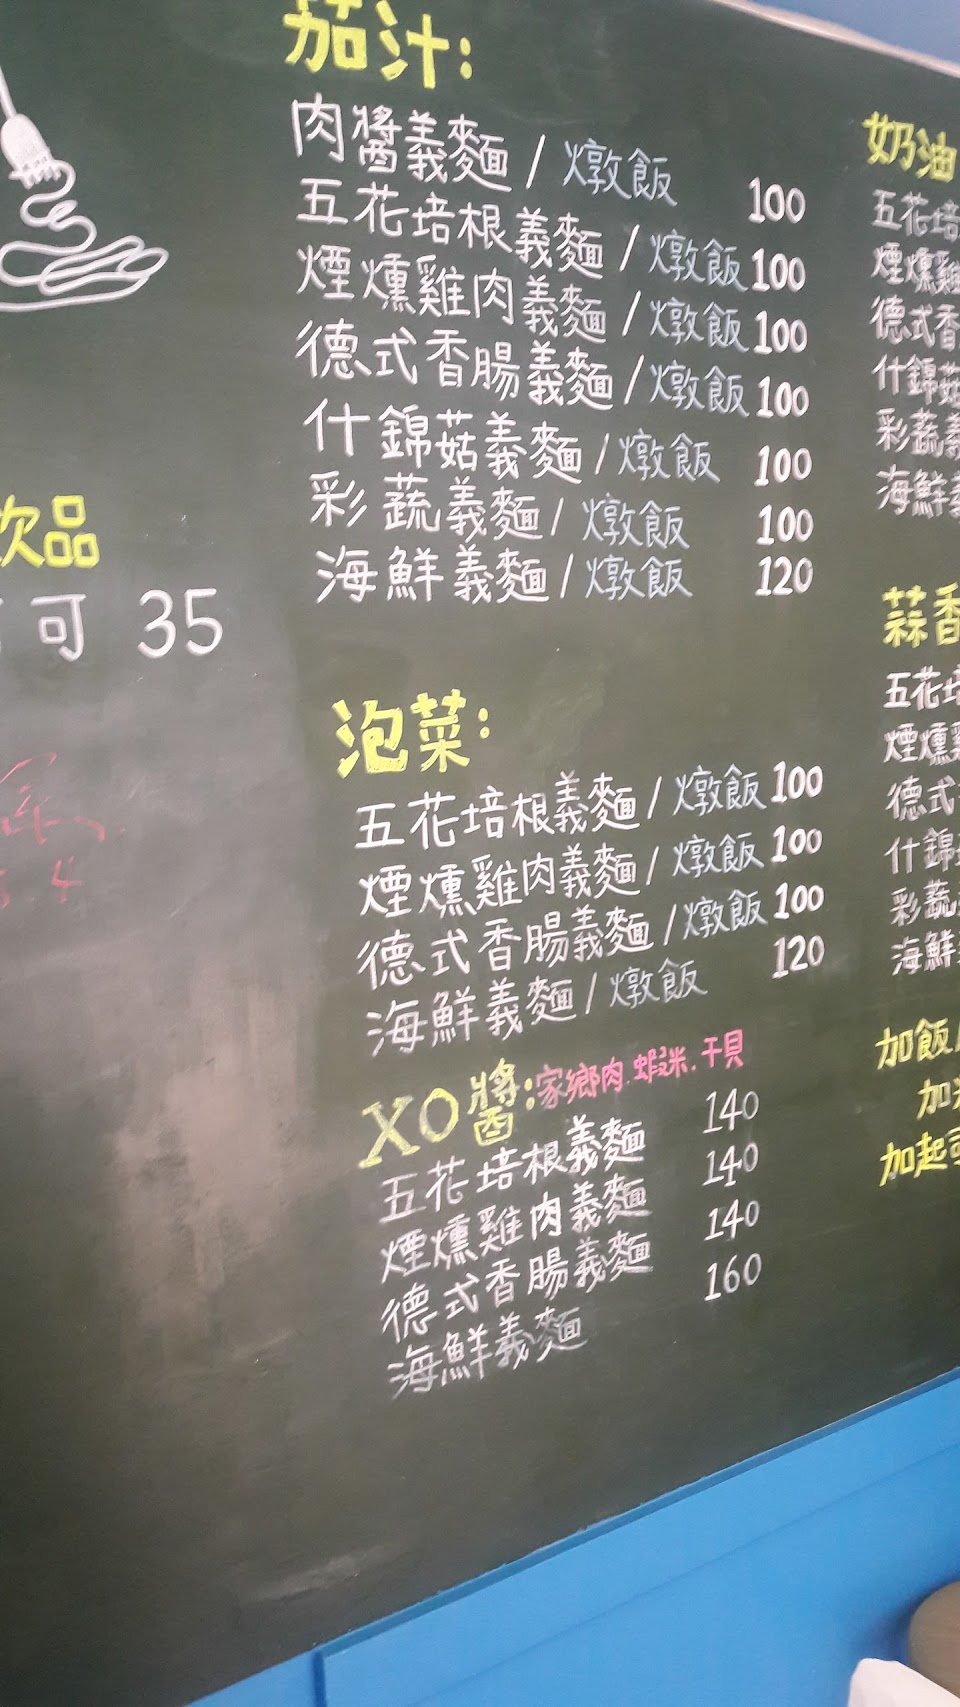 茄汁:
肉醬義麵 / 燉飯 100
五花培根義麵 / 燉飯 100
煙燻雞肉義麵 / 燉飯 100
德式香腸義麵 / 燉飯 100
什錦菇義麵 / 燉飯 100
彩蔬義麵 / 燉飯 100
海鮮義麵 / 燉飯 120
泡菜:
五花培根義麵 / 燉飯 100
煙燻雞肉義麵 / 燉飯 100
德式香腸義麵 / 燉飯 100
海鮮義麵 / 燉飯 120
XO醬:家鄉肉.蝦米.干貝
五花培根義麵 140
煙燻雞肉義麵 140
德式香腸義麵 140
海鮮義麵 160
飲品
可 35
奶油
五花培
煙燻雞
德式香
什錦菇
彩蔬義
海鮮義
蒜香
五花培
煙燻雞
德式
什錦
彩蔬
海鮮
加飯
加
加起司